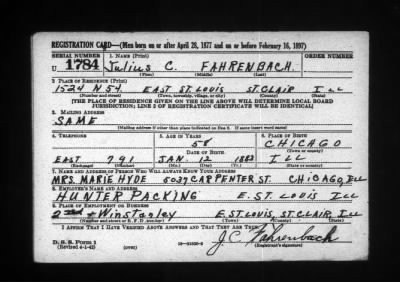 REGISTRATION CARD—(Men born on or after April 28, 1877 and on or before February 16, 1897)
SERIAL NUMBER 1. NAME (Print) ORDER NUMBER
U 1784 Julius C. FAHRENBACH
(First) (Middle) (Last)
2. PLACE OF RESIDENCE (Print)
1524 N 54. EAST ST. LOUIS ST. CLAIR ILL
(Number and street) (Town, township, village, or city) (County) (State)
[THE PLACE OF RESIDENCE GIVEN ON THE LINE ABOVE WILL DETERMINE LOCAL BOARD
JURISDICTION; LINE 2 OF REGISTRATION CERTIFICATE WILL BE IDENTICAL]
3. MAILING ADDRESS
SAME
[Mailing address if other than place indicated on line 2. If same insert word same]
4. TELEPHONE 5. AGE IN YEARS 6. PLACE OF BIRTH
58 CHICAGO
DATE OF BIRTH (Town or county)
EAST 791 JAN. 12 1883 ILL
(Exchange) (Number) (Mo.) (Day) (Yr.) (State or country)
7. NAME AND ADDRESS OF PERSON WHO WILL ALWAYS KNOW YOUR ADDRESS
MRS. MARIE HYDE 5037 CARPENTER ST. CHICAGO, ILL
8. EMPLOYER'S NAME AND ADDRESS
HUNTER PACKING E. ST. LOUIS ILL
9. PLACE OF EMPLOYMENT OR BUSINESS
2nd + Winstanley E. ST. LOUIS, ST. CLAIR, ILL
(Number and street or R. F. D. number) (Town) (County) (State)
I AFFIRM THAT I HAVE VERIFIED ABOVE ANSWERS AND THAT THEY ARE TRUE.
D. S. S. Form 1
(Revised 4-1-42) (over) J.C. Fahrenbach
(Registrant's signature)